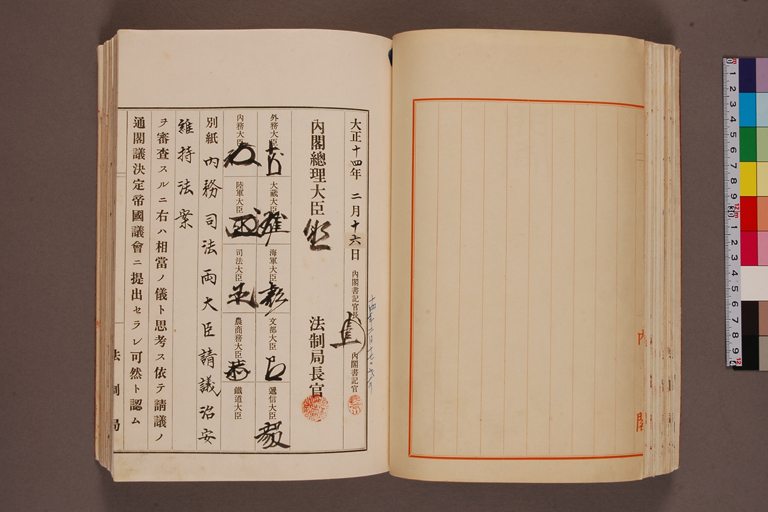 大正十四年 二月十六日
內閣書記官長
內閣書記官
內閣總理大臣
法制局長官
外務大臣
大藏大臣
海軍大臣
文部大臣
遞信大臣
內務大臣
陸軍大臣
司法大臣
農商務大臣
鐵道大臣
別紙內務司法兩大臣請議治安
維持法案
ヲ審查スルニ右ハ相當ノ儀ト思考ス依テ請議ノ
通閣議決定帝國議會ニ提出セラレ可然ト認ム
法制局
內閣